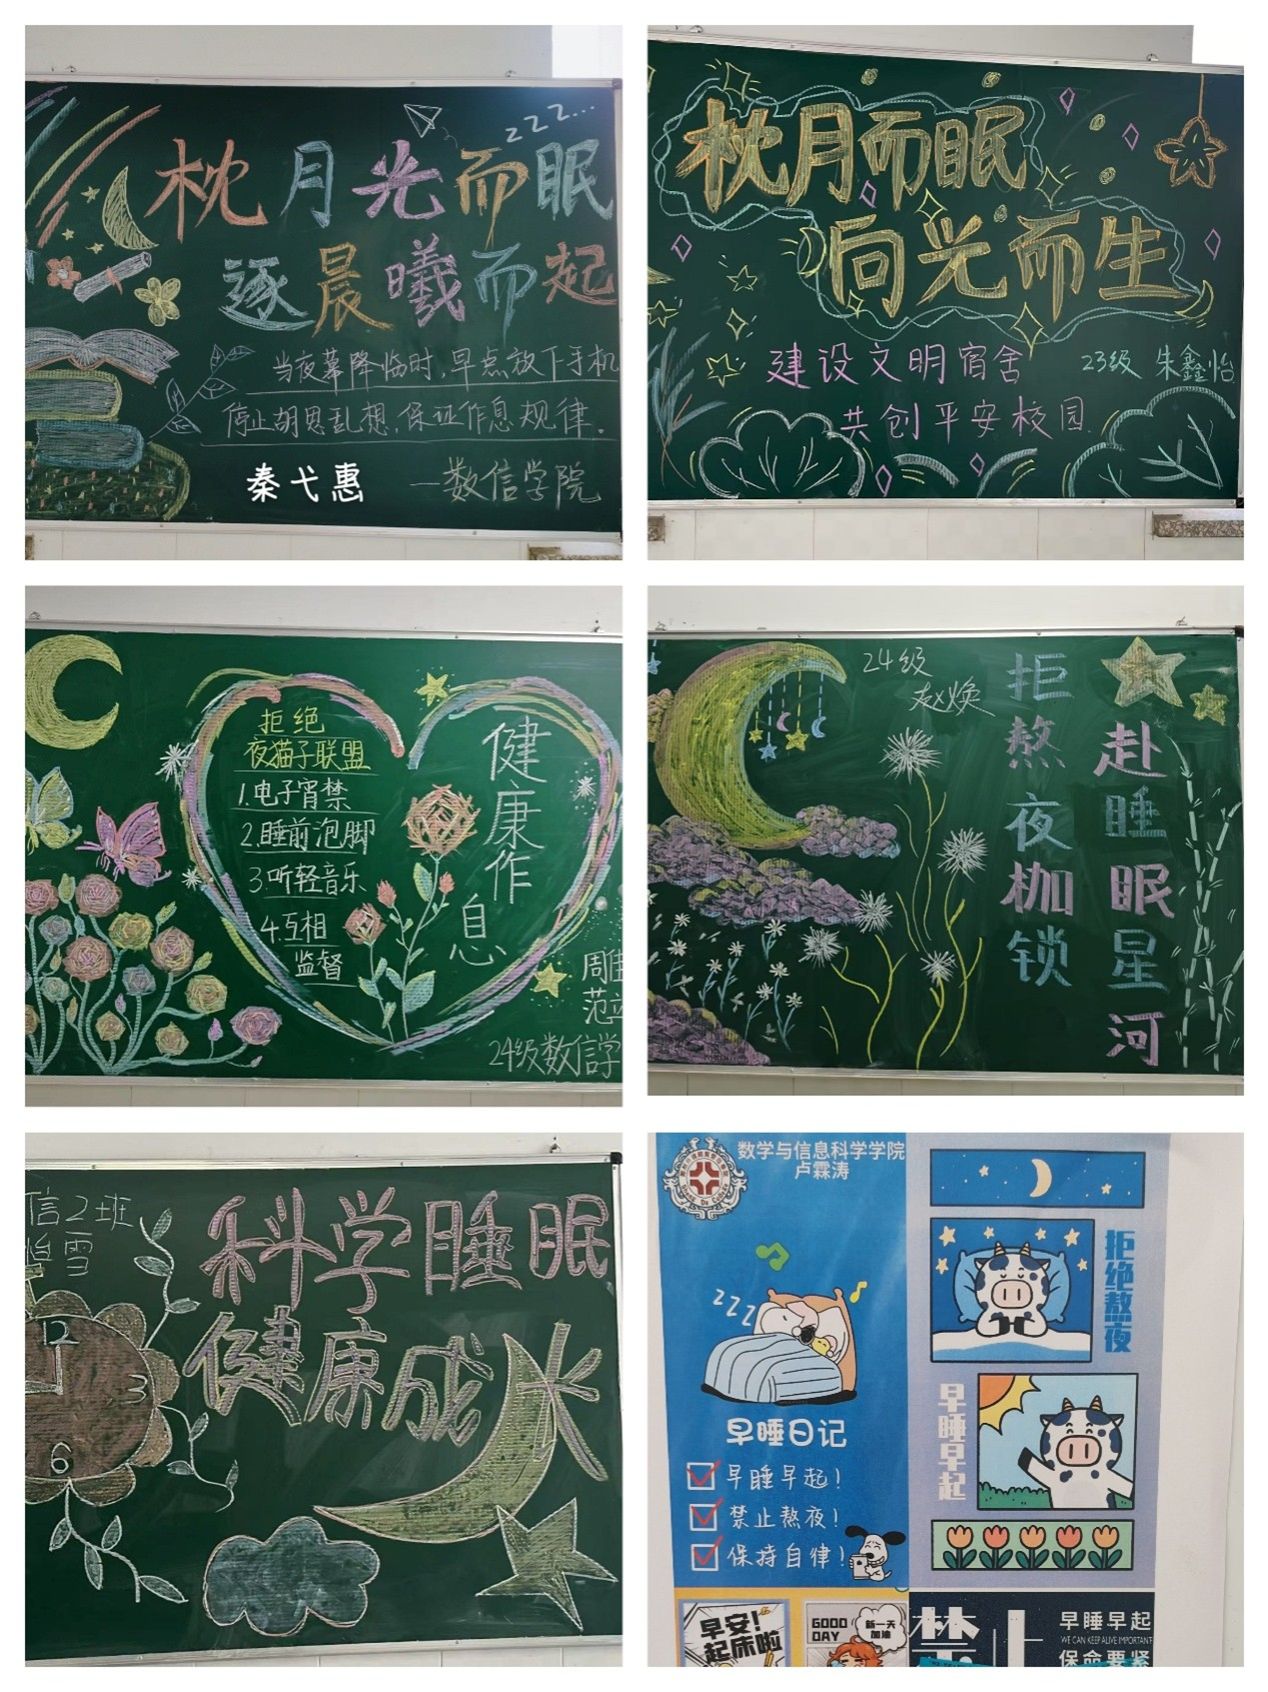 zzz...
枕月光而眠
逐晨曦而起
当夜幕降临时,早点放下手机
停止胡思乱想,保证作息规律。
秦弋惠
—数信学院
枕月而眠
向光而生
建设文明宿舍
23级 朱鑫怡
共创平安校园
拒绝
夜猫子联盟
1.电子宵禁
2.睡前泡脚
3.听轻音乐
4.互相
监督
健康作息
24级数信学
24级
赵焕
拒熬夜枷锁
赴睡眠星河
信2班
雪
科学睡眠
健康成长
12
3
6
数学与信息科学学院
卢霖涛
zzz
早睡日记
早睡早起!
禁止熬夜!
保持自律!
拒绝熬夜
早睡早起
早安!
起床啦
GOOD
DAY
新一天
加油
禁止
早睡早起
WE CAN KEEP ALIVE IMPORTANT
保命要紧